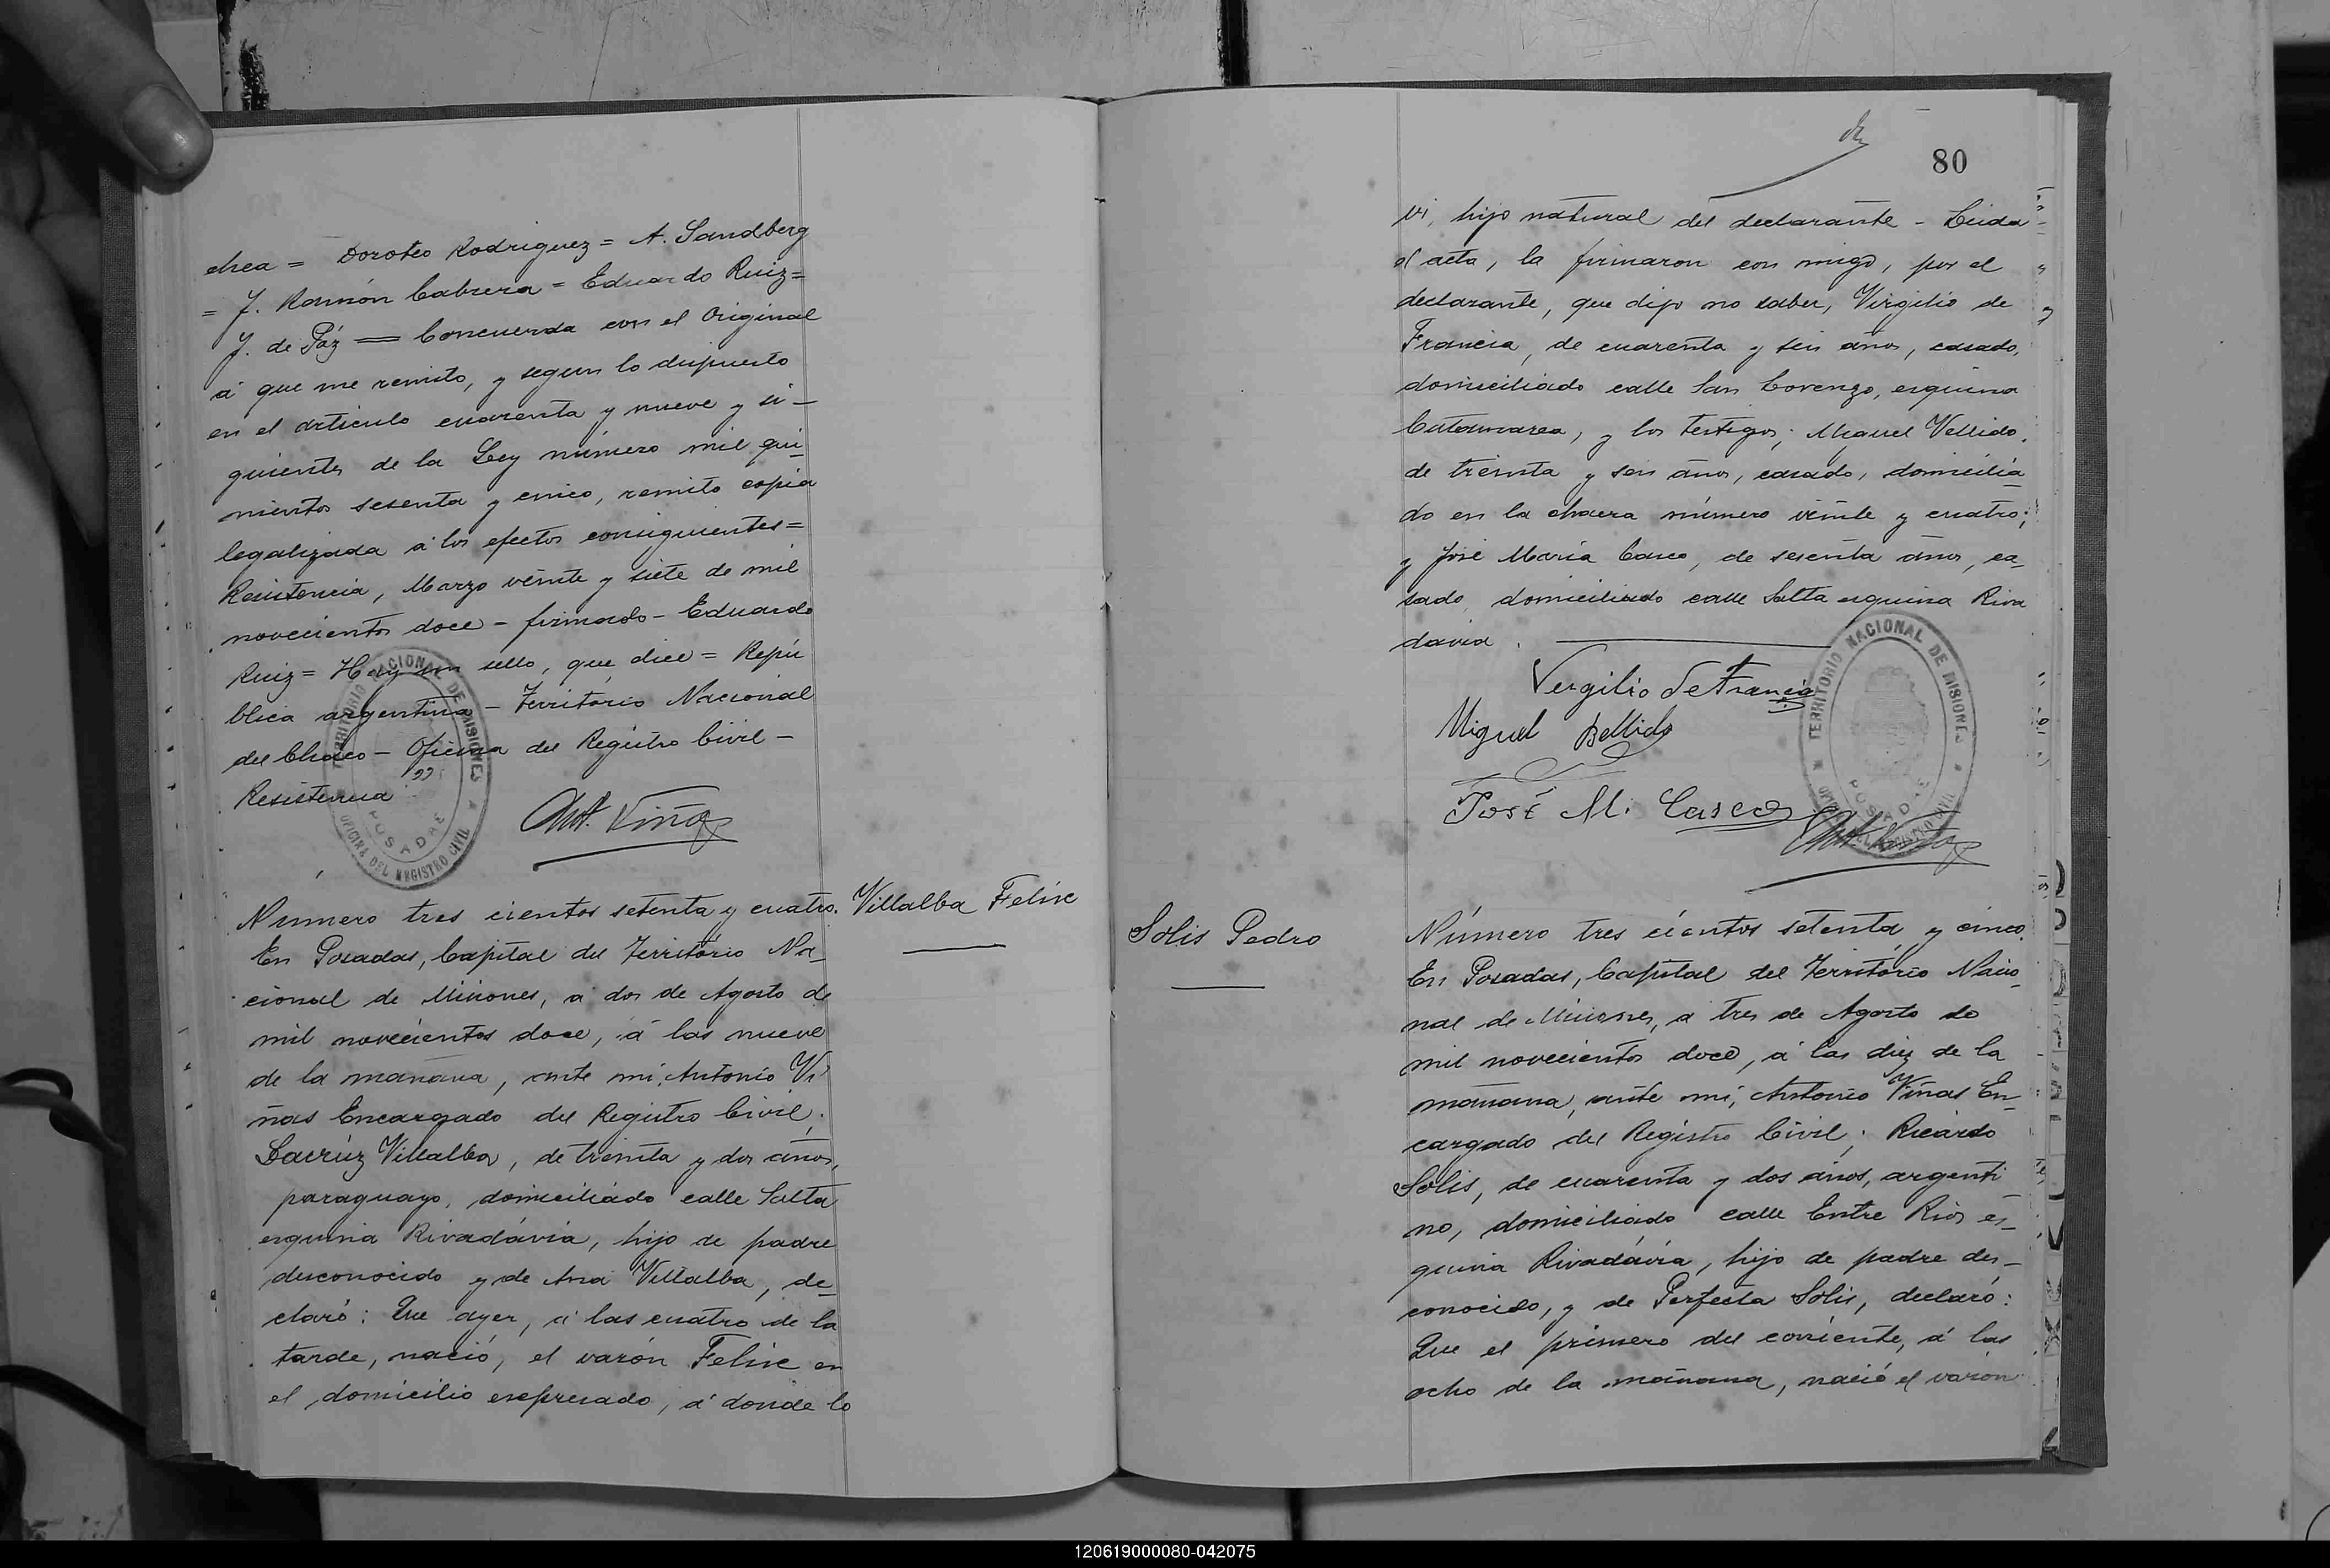 chea = Doroteo Rodriguez = A. Sandberg
= J. Ramón Cabrera = Eduardo Ruiz =
J. de Páz == Concuerda con el Original
á que me remito, y segun lo dispuesto
en el artículo cuarenta y nueve y si-
guientes de la Ley número mil qui-
nientos sesenta y cinco, remito copia
legalizada á los efectos consiguientes =
Resistencia, Marzo veinte y siete de mil
novecientos doce - firmado - Eduardo
Ruiz = Hay un sello, que dice = Repú
blica argentina - Territorio Nacional
del Chaco - Oficina del Registro Civil -
Resistencia
Ant. Viñas
TERRITORIO NACIONAL DE MISIONES
POSADAS
OFICINA DEL REGISTRO CIVIL
Villalba Felix
Número tres cientos setenta y cuatro.
En Posadas, Capital del Territorio Na-
cional de Misiones, á dos de Agosto de
mil novecientos doce, á las nueve
de la mañana, ante mi, Antonio Vi
ñas Encargado del Registro Civil;
Lacrúz Villalba, de treinta y dos años,
paraguayo, domiciliado calle Salta
esquina Rivadávia, hijo de padre
desconocido y de Ana Villalba, de-
claró: Que ayer, á las cuatro de la
tarde, nació, el varón Felix en
el domicilio expresado, á donde lo
80
vi, hijo natural del declarante - Leida
el acta, la firmaron con migo, por el
declarante, que dijo no saber, Virgilio de
Francia, de cuarenta y seis años, casado,
domiciliado calle San Lorenzo, esquina
Catamarca, y los testigos; Miguel Vellido,
de treinta y seis años, casado, domicilia-
do en la chacra número veinte y cuatro;
y José María Casco, de sesenta años, ca-
sado, domiciliado calle Salta esquina Riva
davia.
Vergilio de Francia
Miguel Bellido
José M. Casco
Ant. Viñas
TERRITORIO NACIONAL DE MISIONES
POSADAS
OFICINA DEL REGISTRO CIVIL
Solis Pedro
Número tres cientos setenta y cinco.
En Posadas, Capital del Territorio Nacio-
nal de Misiones, á tres de Agosto de
mil novecientos doce, á las diez de la
mañana, ante mi, Antonio Viñas En-
cargado del Registro Civil; Ricardo
Solis, de cuarenta y dos años, argenti
no, domiciliado calle Entre Rios es-
quina Rivadávia, hijo de padre des-
conocido, y de Perfecta Solis, declaró:
Que el primero del corriente, á las
ocho de la mañana, nació el varón
120619000080-042075